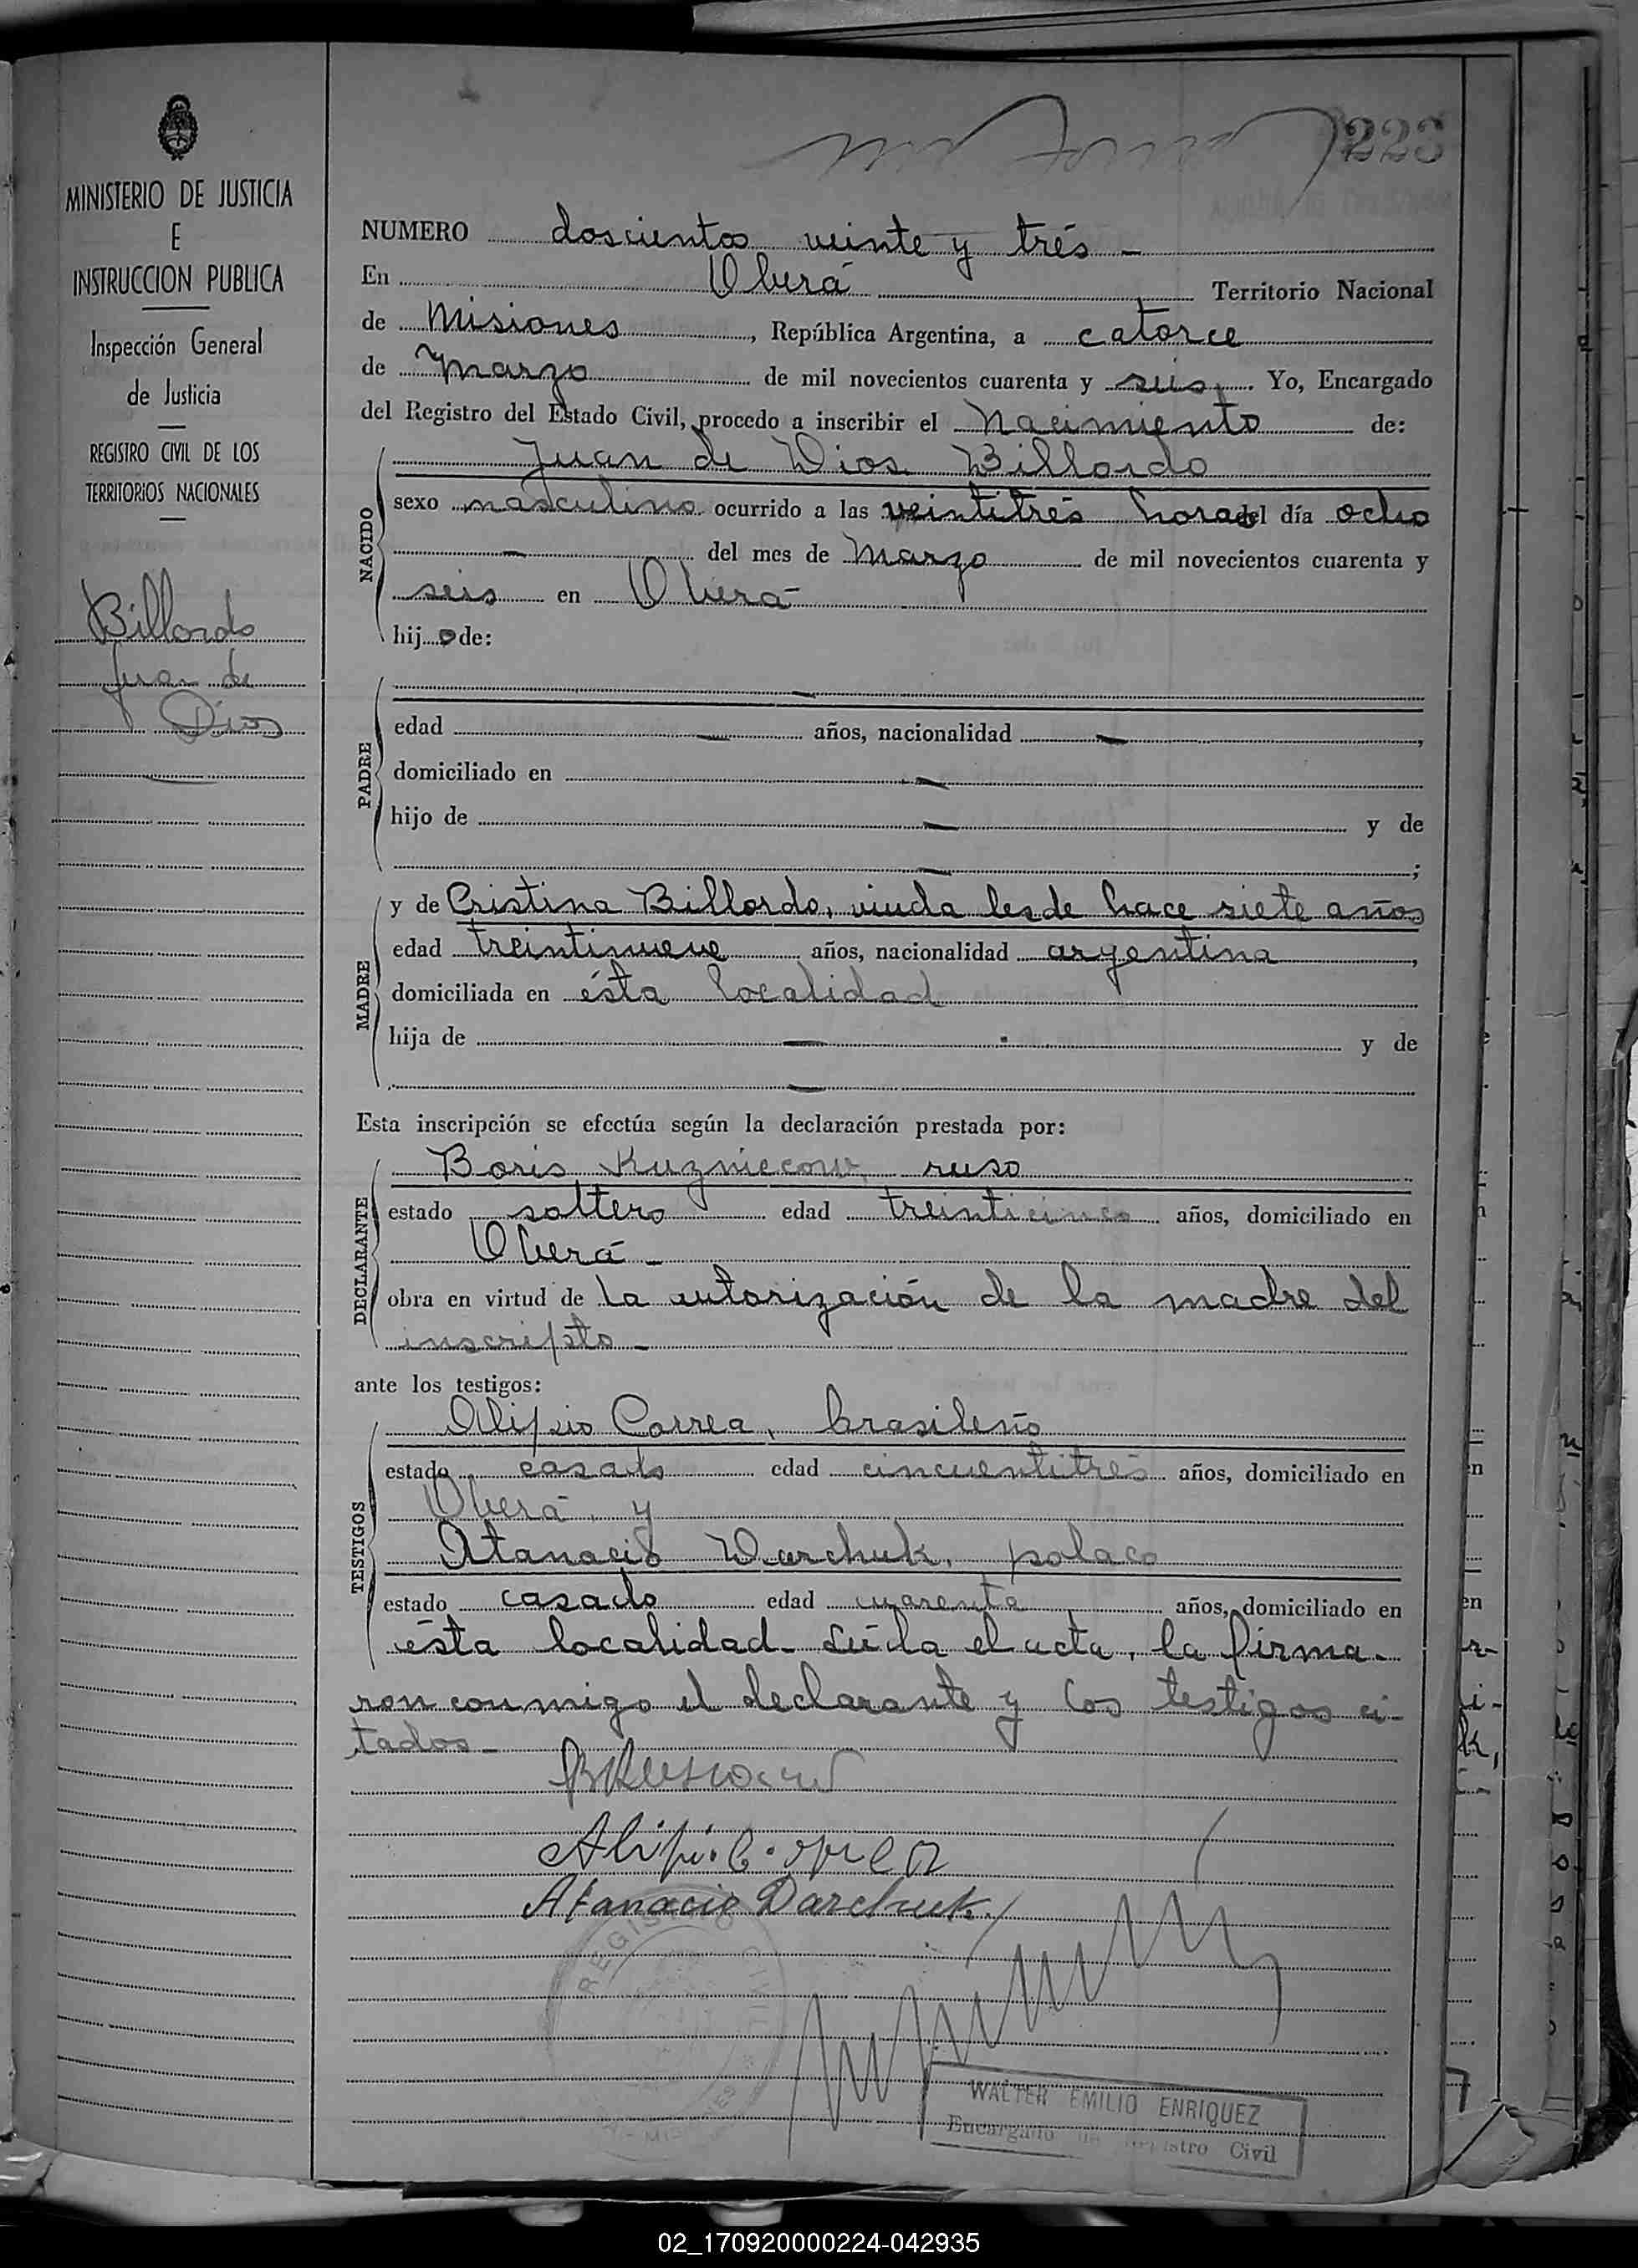 MINISTERIO DE JUSTICIA
E
INSTRUCCION PUBLICA
Inspección General
de Justicia
REGISTRO CIVIL DE LOS
TERRITORIOS NACIONALES
Billordo
Juan de
Dios
223
NUMERO doscientos veinte y trés -
En Oberá Territorio Nacional
de Misiones, República Argentina, a catorce
de Marzo de mil novecientos cuarenta y seis. Yo, Encargado
del Registro del Estado Civil, procedo a inscribir el Nacimiento de:
NACIDO
Juan de Dios Billordo
sexo masculino ocurrido a las veintitrés horas del día ocho
- del mes de Marzo de mil novecientos cuarenta y
seis en Oberá -
hijo de:
PADRE
-
edad - años, nacionalidad -,
domiciliado en -
hijo de - y de
- ;
MADRE
y de Cristina Billordo, viuda desde hace siete años
edad treintinueve años, nacionalidad argentina,
domiciliada en ésta localidad
hija de - y de
-
Esta inscripción se efectúa según la declaración prestada por:
DECLARANTE
Boris Kuzniecow, ruso
estado soltero edad treinticinco años, domiciliado en
Oberá -
obra en virtud de la autorización de la madre del
inscripto -
ante los testigos:
TESTIGOS
Alipio Correa, brasileño
estado casado edad cincuentitrés años, domiciliado en
Oberá, y
Atanacio Darchuk, polaco
estado casado edad cuarenta años, domiciliado en
ésta localidad - Leída el acta, la firma-
ron conmigo el declarante y los testigos ci-
tados -
Atanacio Darchuk
REGISTRO CIVIL
MISIONES
WALTER EMILIO ENRIQUEZ
Encargado de Registro Civil
02_170920000224-042935